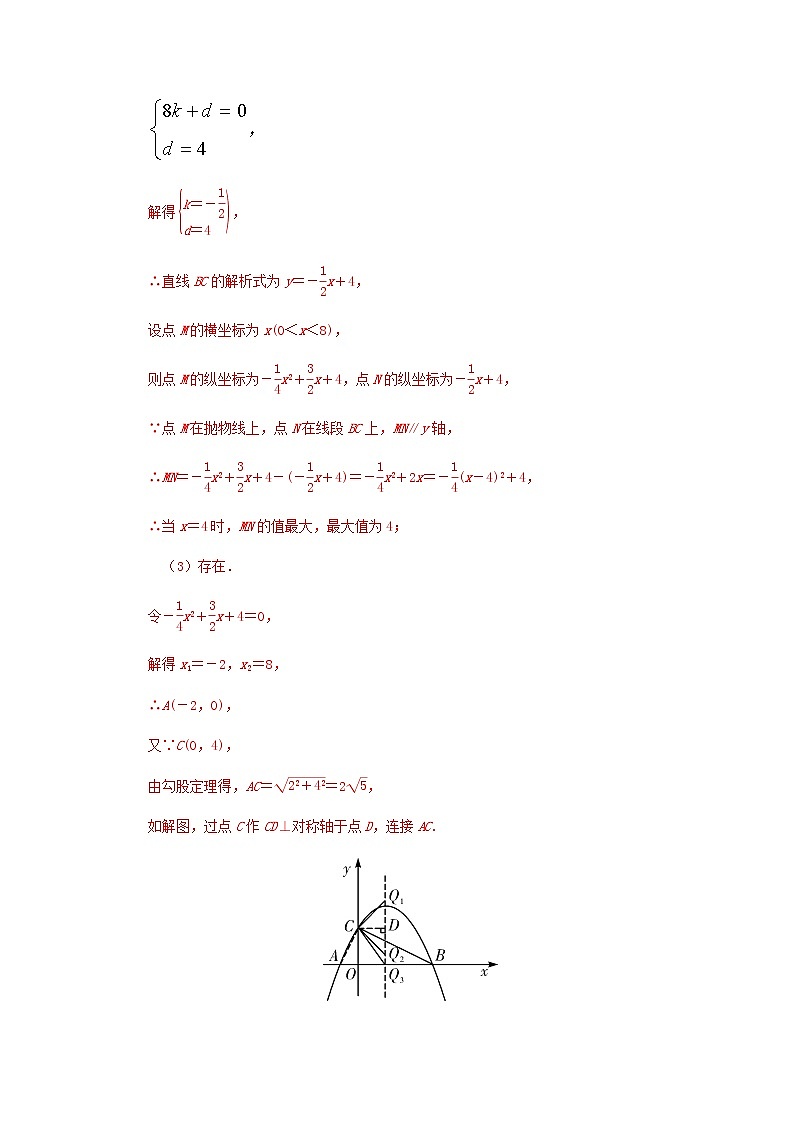 {8k+d=0
d=4,
解得{k=-1/2
d=4),
∴直线BC的解析式为y=-1/2x+4,
设点M的横坐标为x(0<x<8),
则点M的纵坐标为-1/4x²+3/2x+4,点N的纵坐标为-1/2x+4,
∵点M在抛物线上,点N在线段BC上,MN∥y轴,
∴MN=-1/4x²+3/2x+4-(-1/2x+4)=-1/4x²+2x=-1/4(x-4)²+4,
∴当x=4时,MN的值最大,最大值为4;
(3)存在.
令-1/4x²+3/2x+4=0,
解得x₁=-2,x₂=8,
∴A(-2,0),
又∵C(0,4),
由勾股定理得,AC=√(2²+4²)=2√5,
如解图,过点C作CD⊥对称轴于点D,连接AC.
y
Q₁
C D
A Q₂ B
O Q₃ x